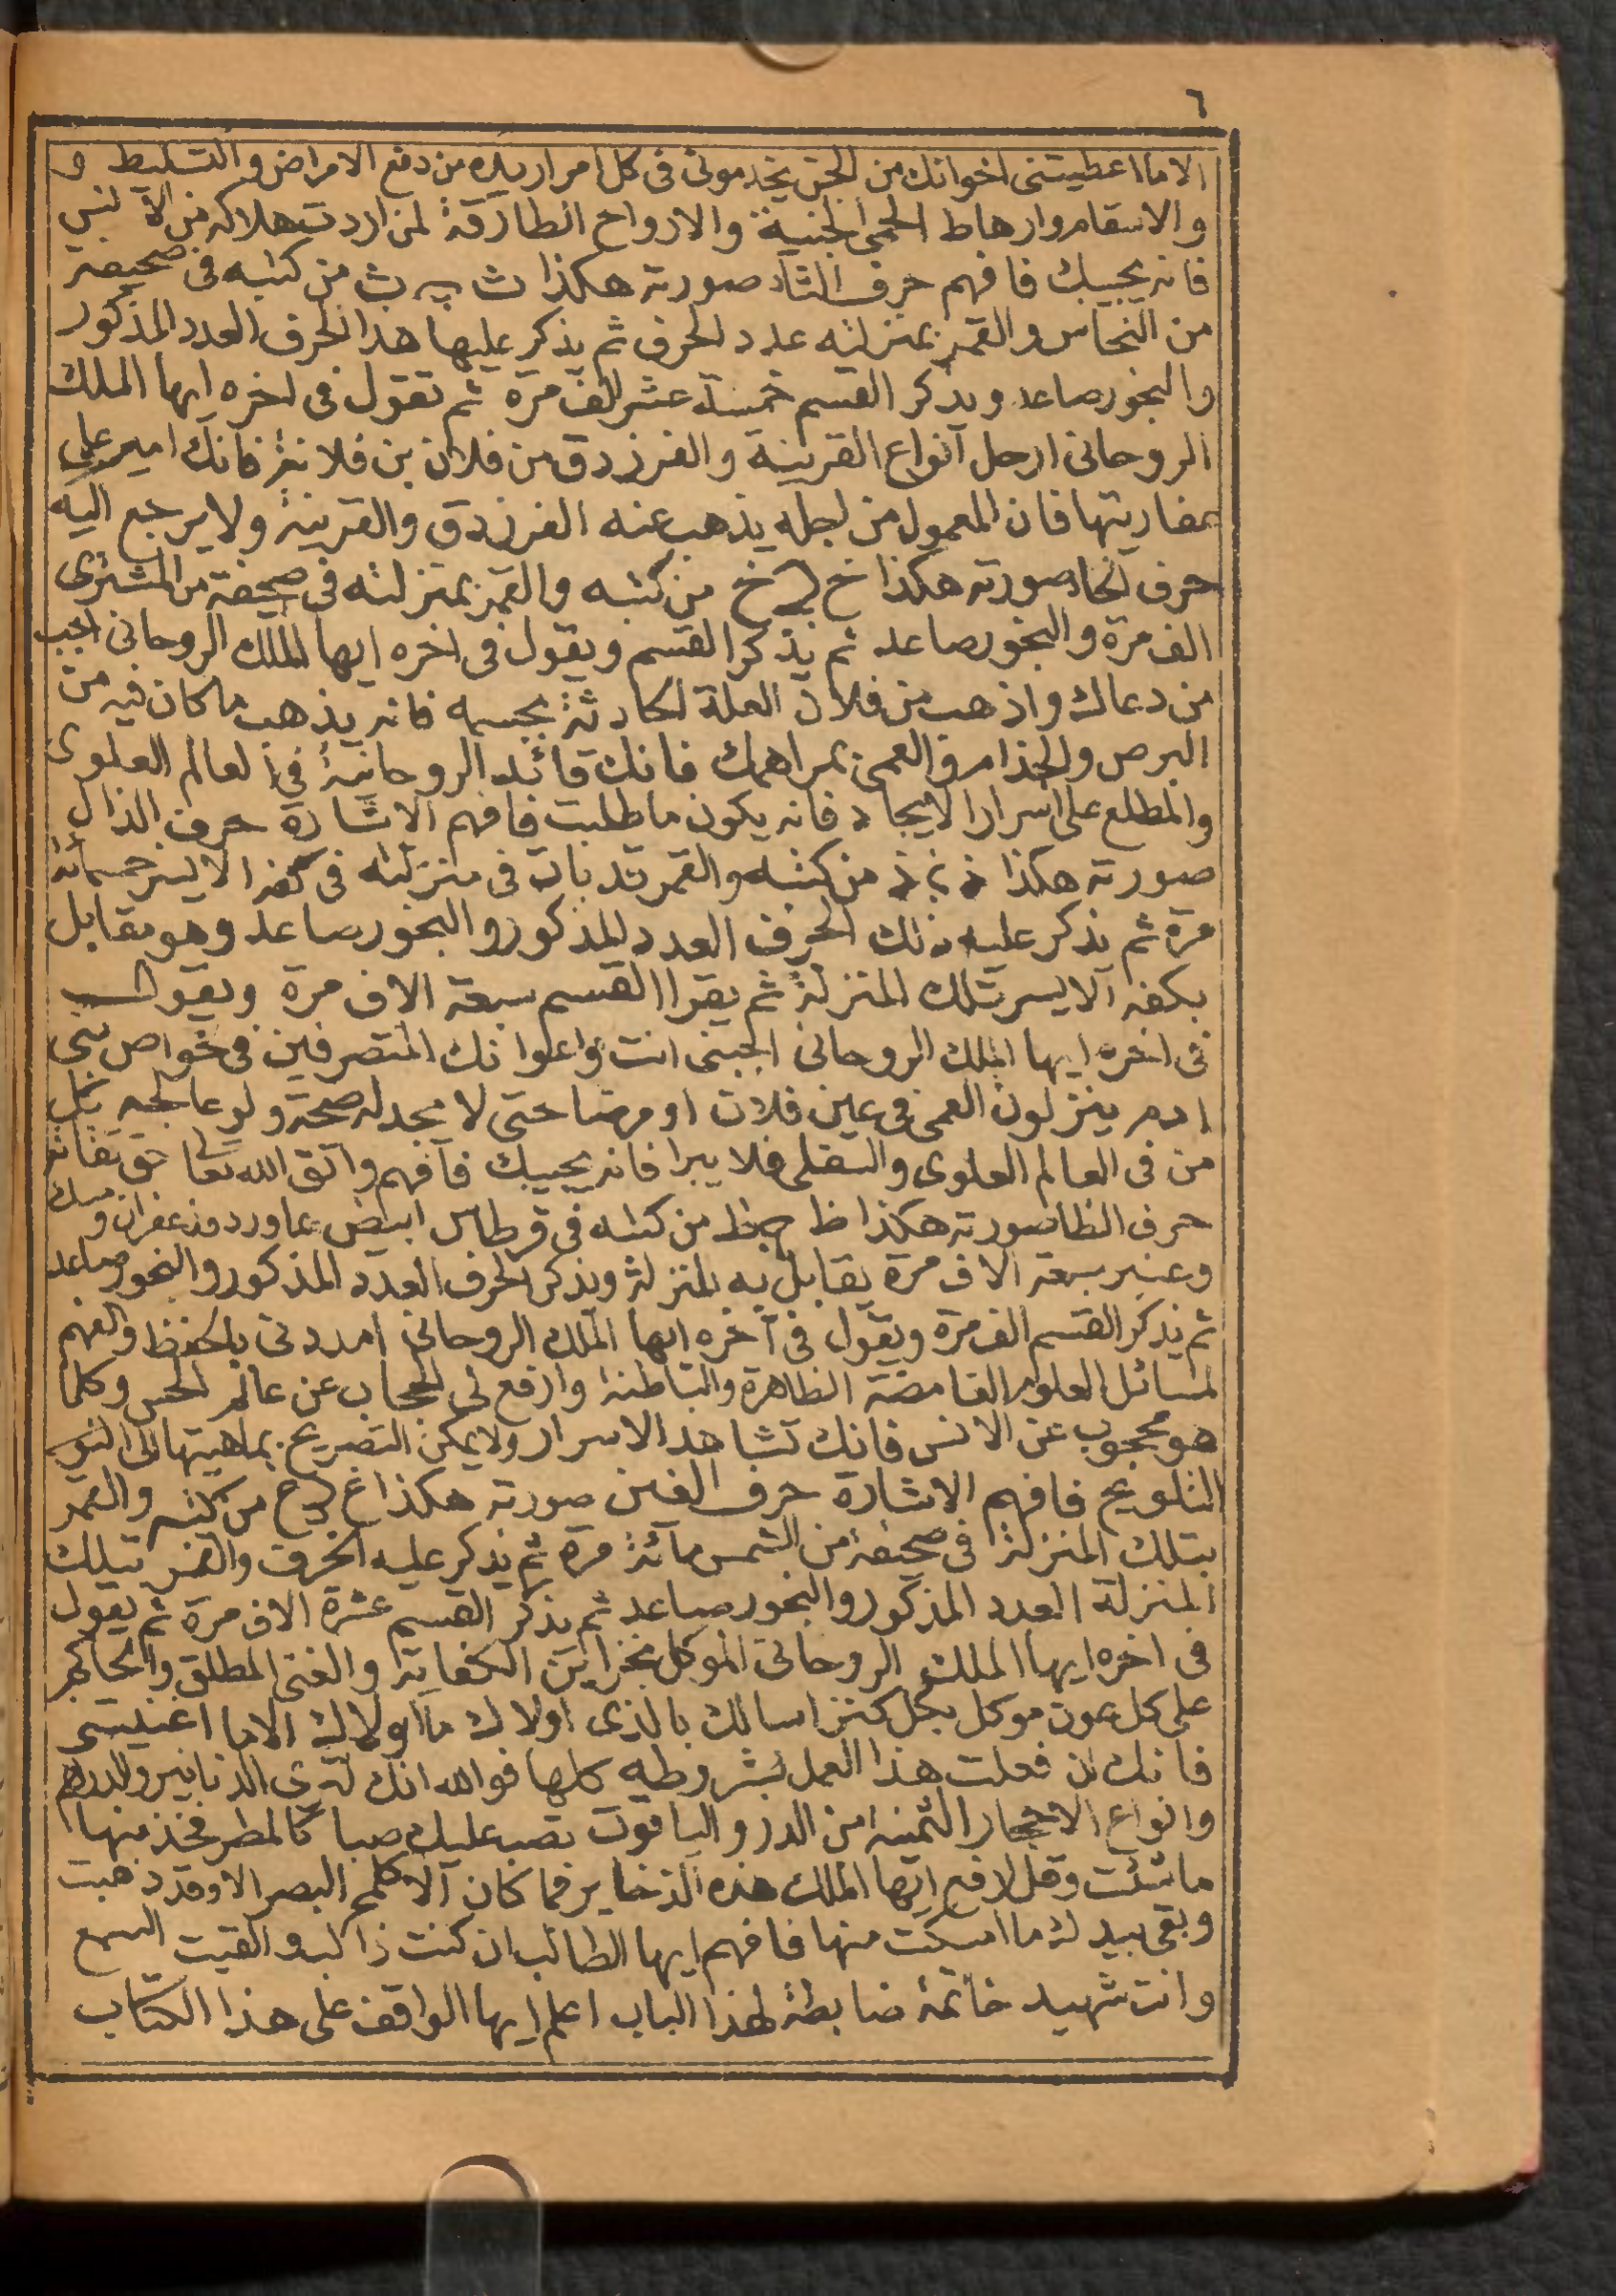 ٦
الا ما اعطيتنى اخوانك من الجن يخدمونى فى كل امر اريده من دفع الامراض والتسليط و
والاسقام وارهاط الحمى الجنية والارواح الطارقة لمن اردت هلاكه من الانس
فانه يجيبك فافهم حرف الثاء صورته هكذا ث من كتبه فى صحيفة
من النحاس والقمر بمنزلته عدد الحرف ثم يذكر عليها هذا الحرف العدد المذكور
والبخور صاعد ويذكر القسم خمسة عشر الف مرة ثم تقول فى اخره ايها الملك
الروحانى ارحل انواع القرينة والفرزدق من فلان بن فلانة فانك امير على
فان المعمول من اجله يذهب عنه الفرزدق والقرينة ولا يرجع اليه
حرف الخاء صورته هكذا خ خ من كتبه والقمر بمنزلته فى صحيفة من المشترى
الف مرة والبخور صاعد ثم يذكر القسم ويقول فى اخره ايها الملك الروحانى اجب
من دعاك واذهب من فلان العلة الحادثة بجسمه فانه يذهب ما كان فيه من
البرص والجذام والعمى بمراهمك فانك قائد الروحانية فى العالم العلوى
والمطلع على اسرار الايجاد فانه يكون ما طلبت فافهم الاشارة حرف الذال
صورته هكذا ذ ذ من كتبه والقمر قد بات فى منزلته فى كفه الايسر خمسمائة
مرة ثم يذكر عليه ذلك الحرف العدد المذكور والبخور صاعد وهو مقابل
بكفه الايسر تلك المنزلة ثم يقرا القسم سبعة الاف مرة ويقول
فى اخره ايها الملك الروحانى اجبنى انت واعوانك المتصرفين فى خواص بنى
ادم ينزلون العمى فى عين فلان او مرضا حتى لا يجد له صحة ولو عالجه بكل
من فى العالم العلوى والسفلى فلا يبرا فانه يجيبك فافهم واتق الله تعا حق تقاته
حرف الظا صورته هكذا ظ ظ من كتبه فى قرطاس ابيض بماورد وزعفران ومسك
وعنبر سبعة الاف مرة يقابل به المنزلة ويذكر الحرف العدد المذكور والبخور صاعد
ثم يذكر القسم الف مرة ويقول فى آخره ايها الملك الروحانى امددنى بالحفظ والفهم
لمسائل العلوم الغامضة الظاهرة والباطنة وارفع لى الحجاب عن عالم الحس وكلما
هو محجوب عن الانس فانك تشاهد الاسرار ولا يمكن التصريح بماهيتها
التلويح فافهم الاشارة حرف الغين صورته هكذا غ غ من كتبه والقمر
بتلك المنزلة فى صحيفة من الشمس مائة مرة ثم يذكر عليه الحرف والقمر بتلك
المنزلة العدد المذكور والبخور صاعد ثم يذكر القسم عشرة الاف مرة ثم يقول
فى اخره ايها الملك الروحانى الموكل بخزاين الكفاية والغنى المطلق والحاكم
على كل عون موكل بكل كنز اسالك بالذى اولاك ما اولاك الا ما اغنيتنى
فانك ان فعلت هذا العمل بشروطه كلها فوالله انك لترى الدنانير والدراهم
وانواع الاحجار الثمينة من الدر والياقوت تصب عليك صبا كالمطر فخذ منها
ما شئت وقل ارفع ايها الملك هذه الذخاير فما كان الا كلمح البصر الا وقد ذهبت
وبقى بيدك ما امسكت منها فافهم ايها الطالب ان كنت ذا لب والقيت السمع
وانت شهيد خاتمة ضابطة لهذا الباب اعلم ايها الواقف على هذا الكتاب